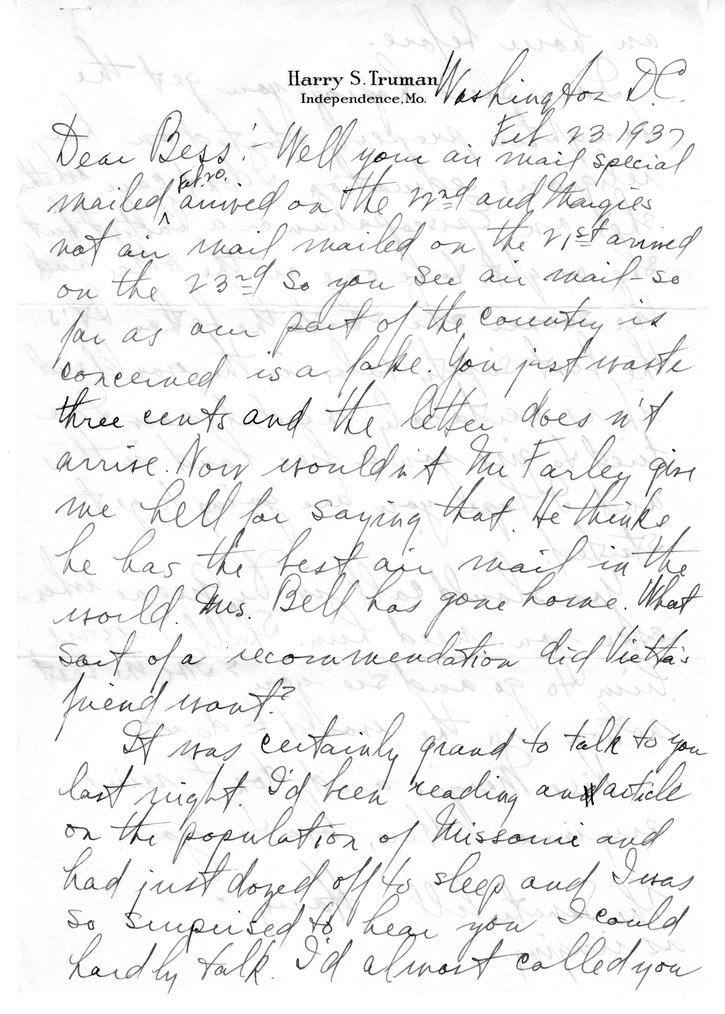 Harry S. Truman
Independence, Mo.
Washington D.C.
Feb 23 1937
Dear Bess:- Well your air mail special
mailed Feb. 20, arrived on the 22nd and Margies
not air mail mailed on the 21st arrived
on the 23rd So you see air mail - so
far as our part of the country is
concerned is a fake. You just waste
three cents and the letter does n't
arrive. Now wouldn't Mr Farley give
me hell for saying that. He thinks
he has the best air mail in the
world. Mrs. Bell has gone home. What
sort of a recommendation did Vietta's
friend want?
It was certainly grand to talk to you
last night. I'd been reading an article
on the population of Missouri and
had just dozed off to sleep and I was
so surprised to hear you I could
hardly talk. I'd almost called you